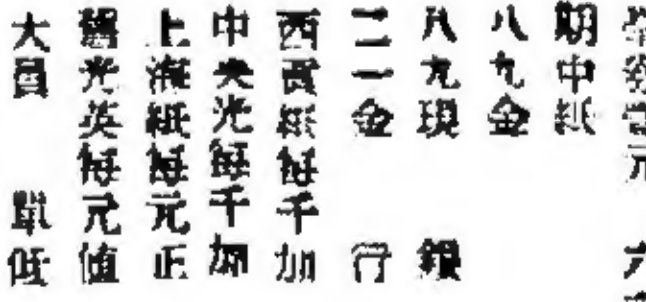 期中紙
八九金
八九現 銀
二一金 行
西貢紙每千加
中央光每千加
上海紙每元正
光英每元值
大員 低